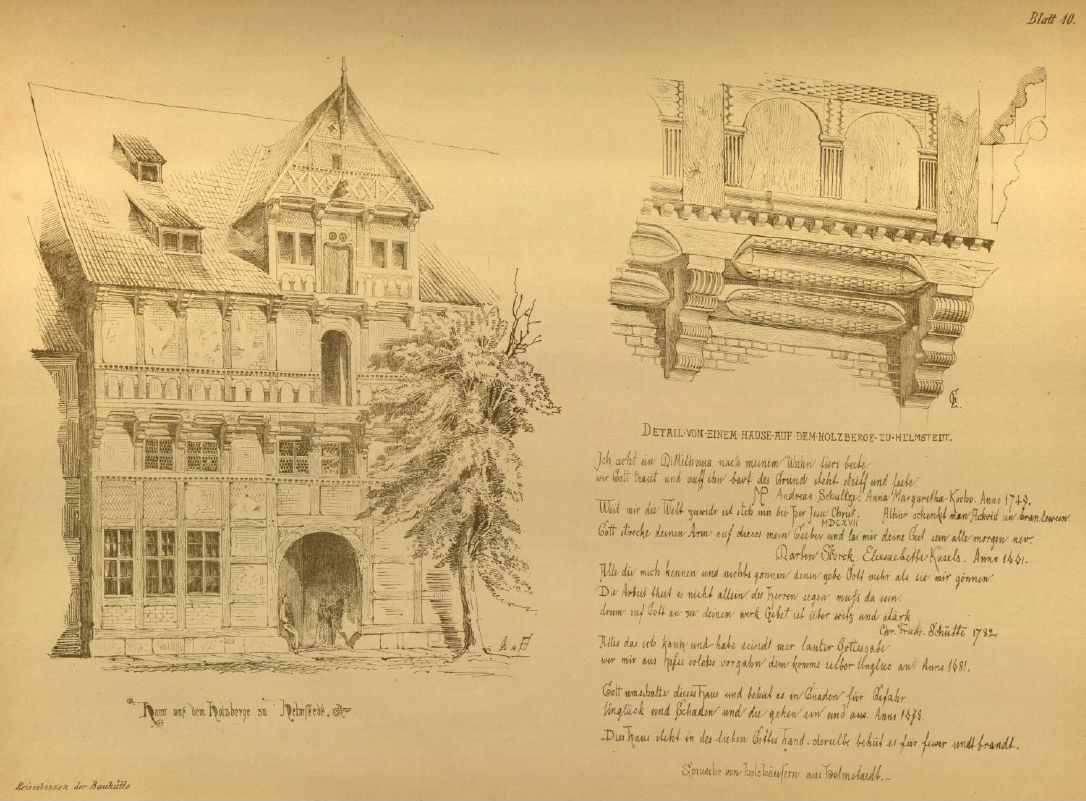 Blatt 10.
Haus auf dem Holzberge zu Helmstedt.
DETAIL·VON·EINEM·HAUSE·AUF·DEM·HOLZBERGE·ZU·HELMSTEDT.
Ich acht ein nach meinem Wahn fürs beste
wer Gott traut und auff ihn baut des Grund steht steiff und feste
Andreas Schultze. Anna Margaretha Anno 1749.
Weil mir die Welt zuwider ist steh mir bei Herr Jesu Christ.
MDCXVII
Gott strecke deinen Arm auf dieses mein und las mir deine Gut sein alle morgen neu.
Marten Storck. Anno
Alle die mich kennen und nichts gonnen denen gebe Gott mehr als sie mir gönnen
Die Arbeit thut es nicht allein des Herren segen muss da sein.
drum ruf Gott an zu deinem werk Gebet ist über witz und stärk
Chr. Friedr. Schütte 1782.
Alles das ich kann und habe seindt mer lauter Gottesgabe
wer mir aus solches vorgahn dem komme selber Ungluc an. Anno
Gott umschalte dieses Haus und behut es in Gnaden für Gefahr
Unglück und Schaden und die gehen ein und aus. Anno
Dies Haus steht in des lieben Gottes Hand. derselbe behüt es für fewer undt brandt.
Sprueche von Holzhäusern aus Helmstaedt.
Reiseskizzen der Bauhütte